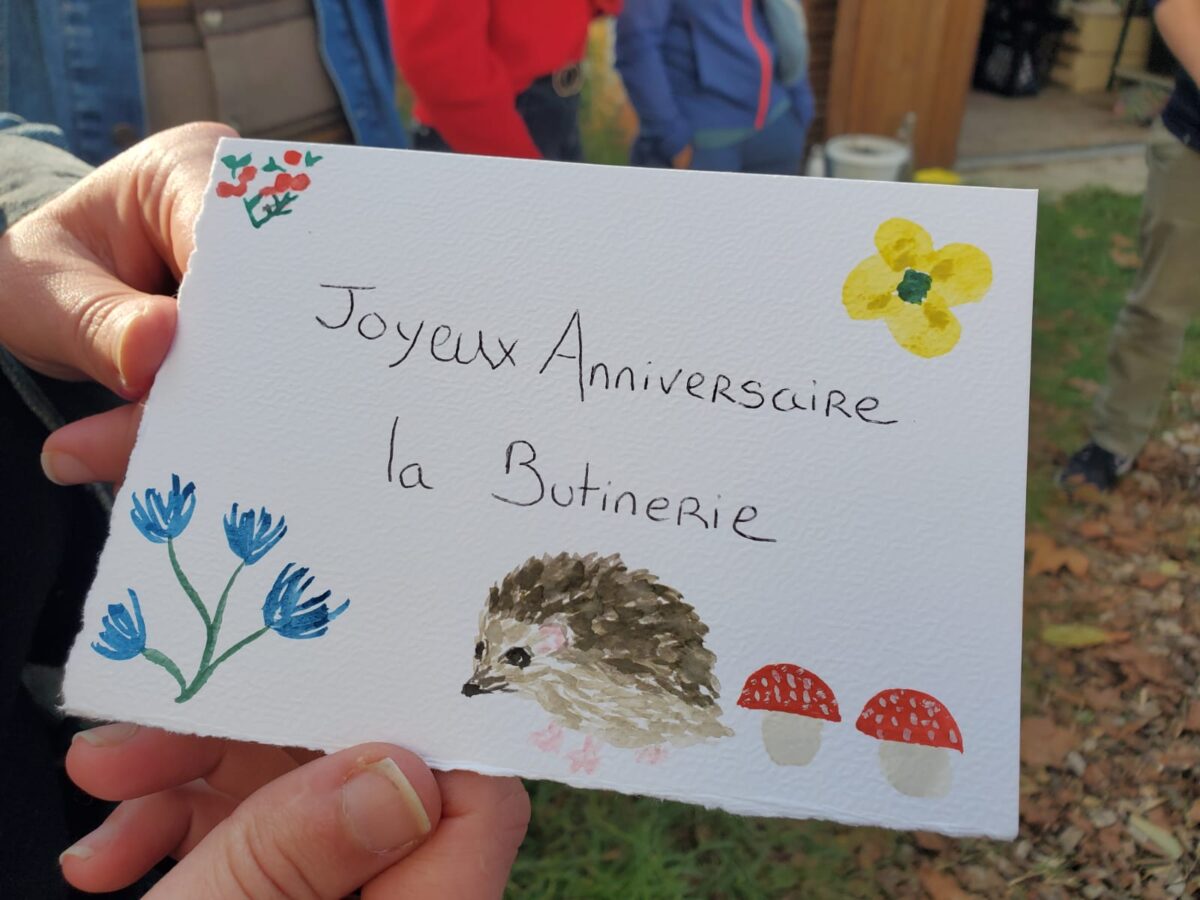 Joyeux Anniversaire
la Butinerie